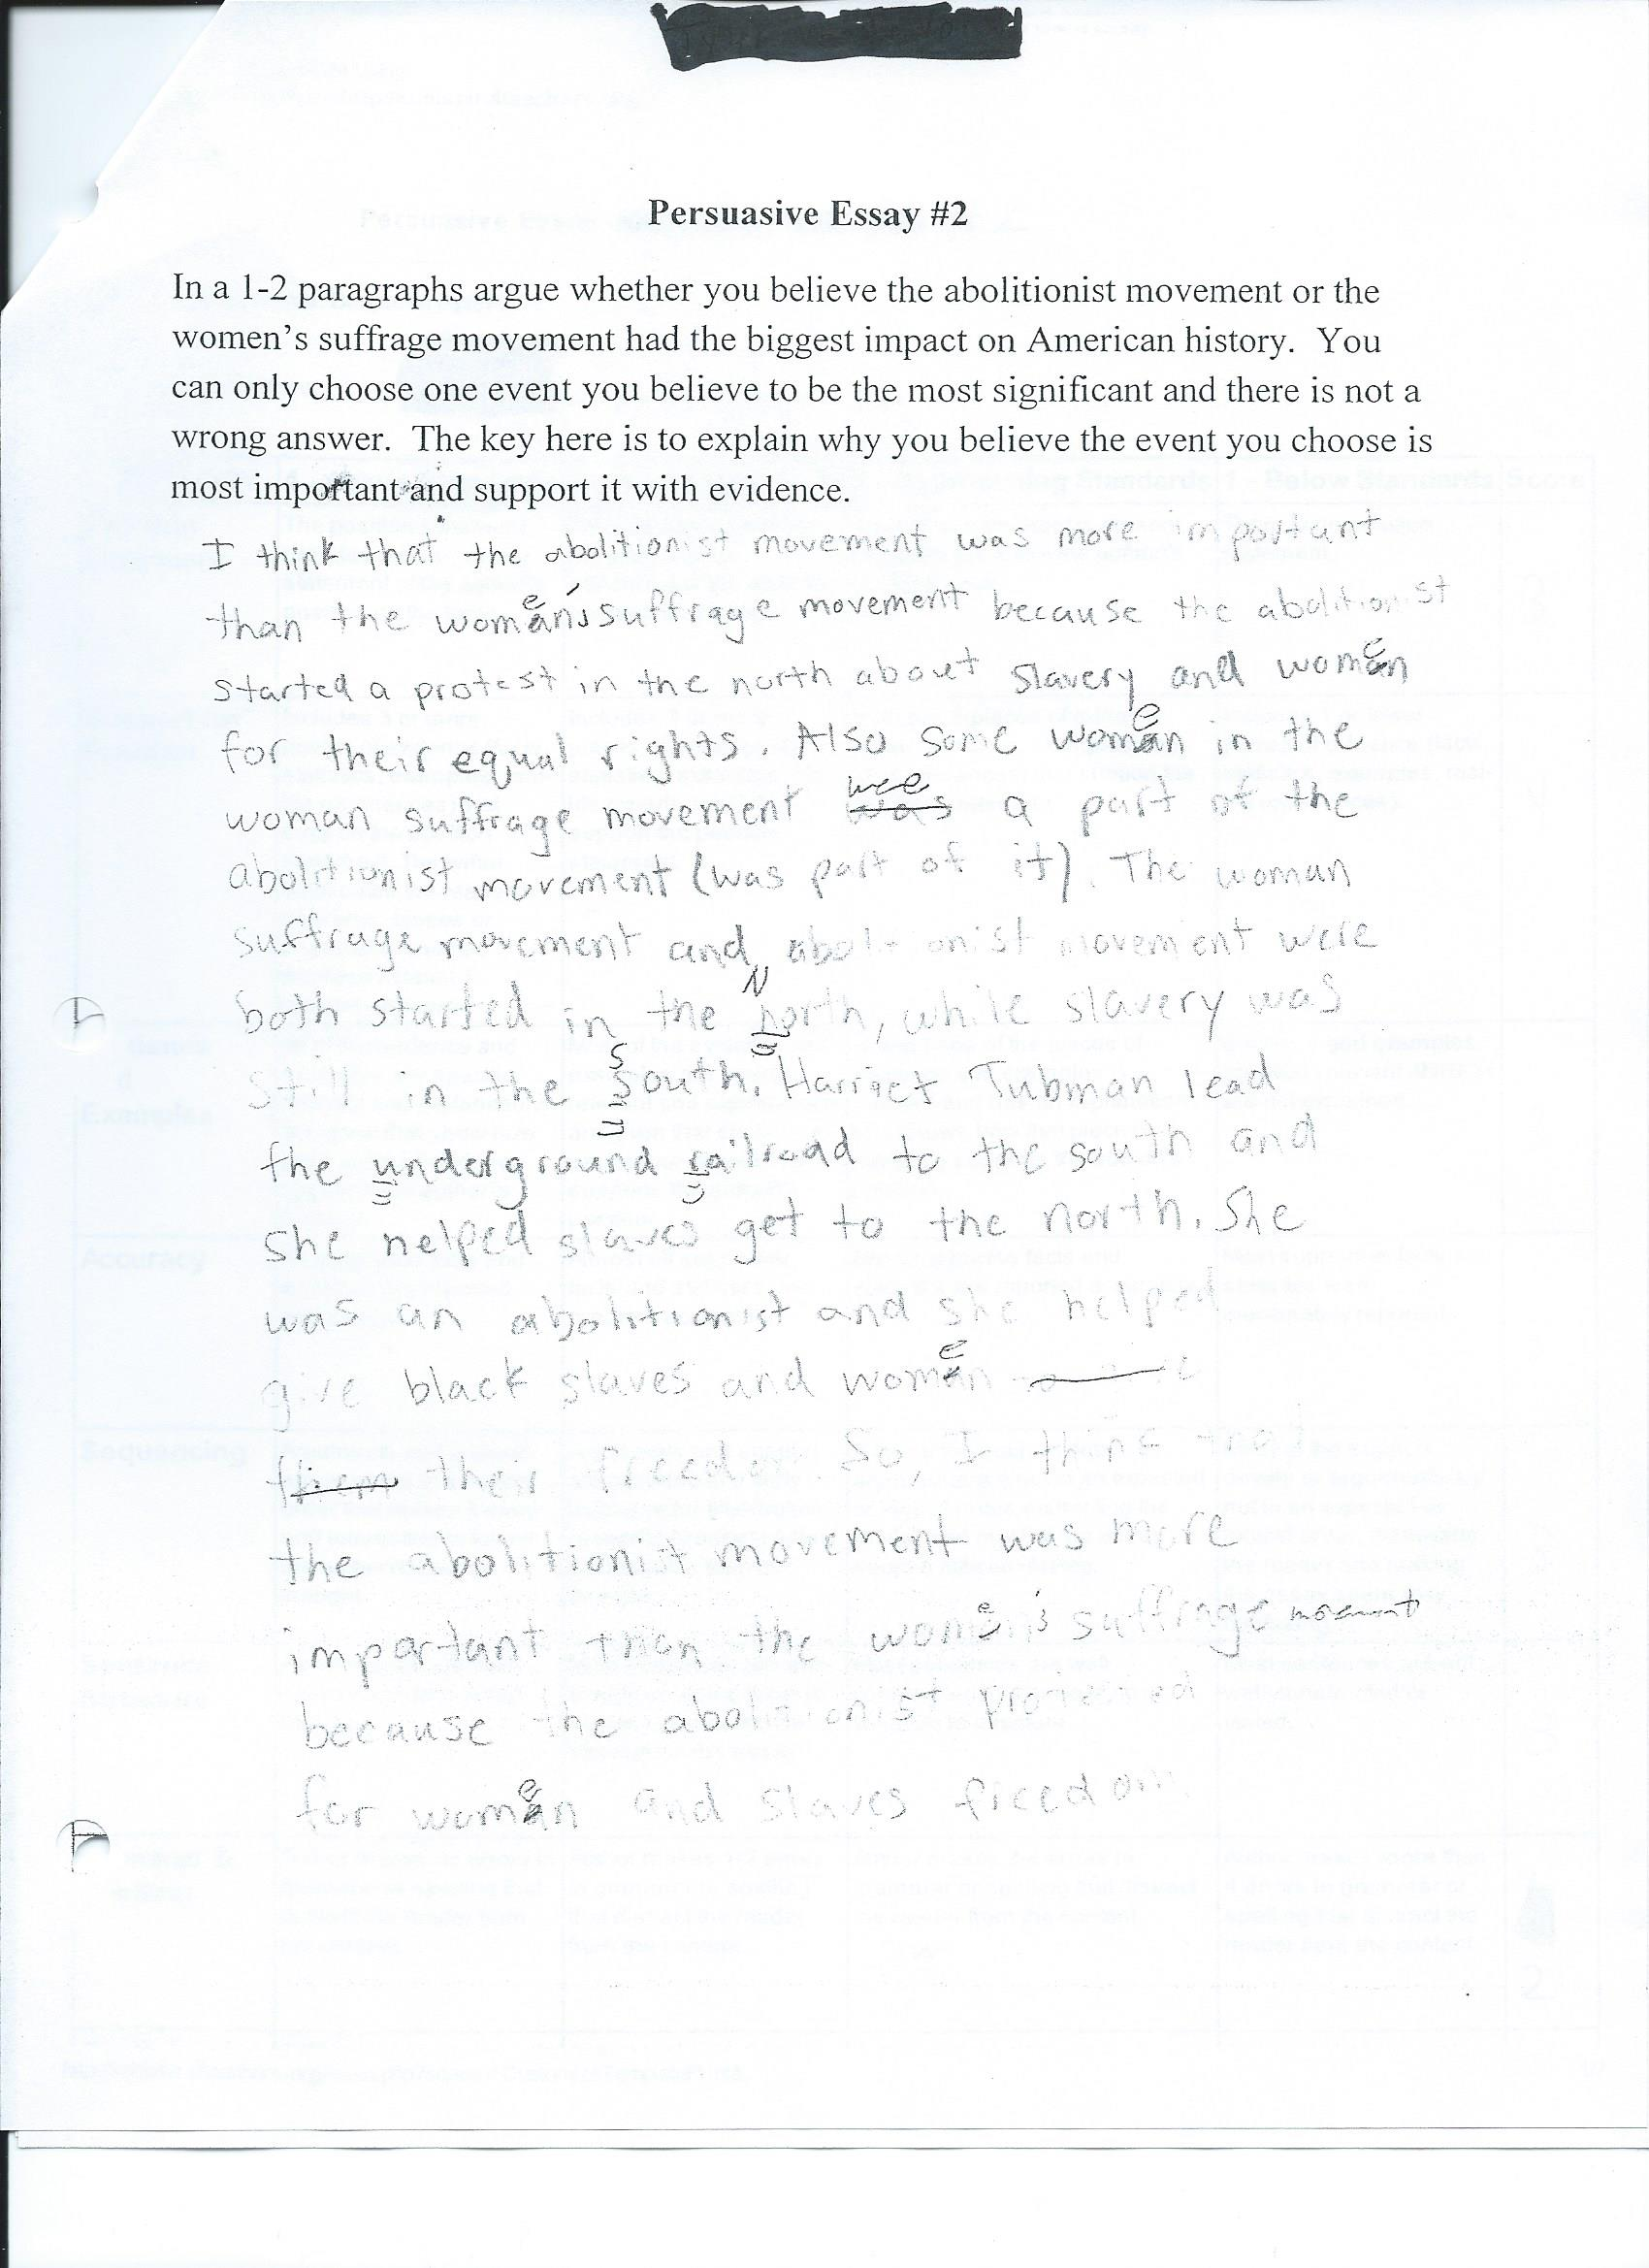 Persuasive Essay #2
In a 1-2 paragraphs argue whether you believe the abolitionist movement or the
women's suffrage movement had the biggest impact on American history. You
can only choose one event you believe to be the most significant and there is not a
wrong answer. The key here is to explain why you believe the event you choose is
most important and support it with evidence.
I think that the abolitionist movement was more important
than the women's suffrage movement because the abolitionist
started a protest in the north about slavery and women
for their equal rights. Also some women in the
woman suffrage movement were a part of the
abolitionist movement (was part of it). The woman
suffrage movement and abolitionist movement were
both started in the North, while slavery was
still in the South. Harriet Tubman lead
the underground railroad to the south and
she helped slaves get to the north. She
was an abolitionist and she helped
give black slaves and women
them their freedom. So, I think that
the abolitionist movement was more
important than the women's suffrage movement
because the abolitionist provided
for women and slaves freedom.